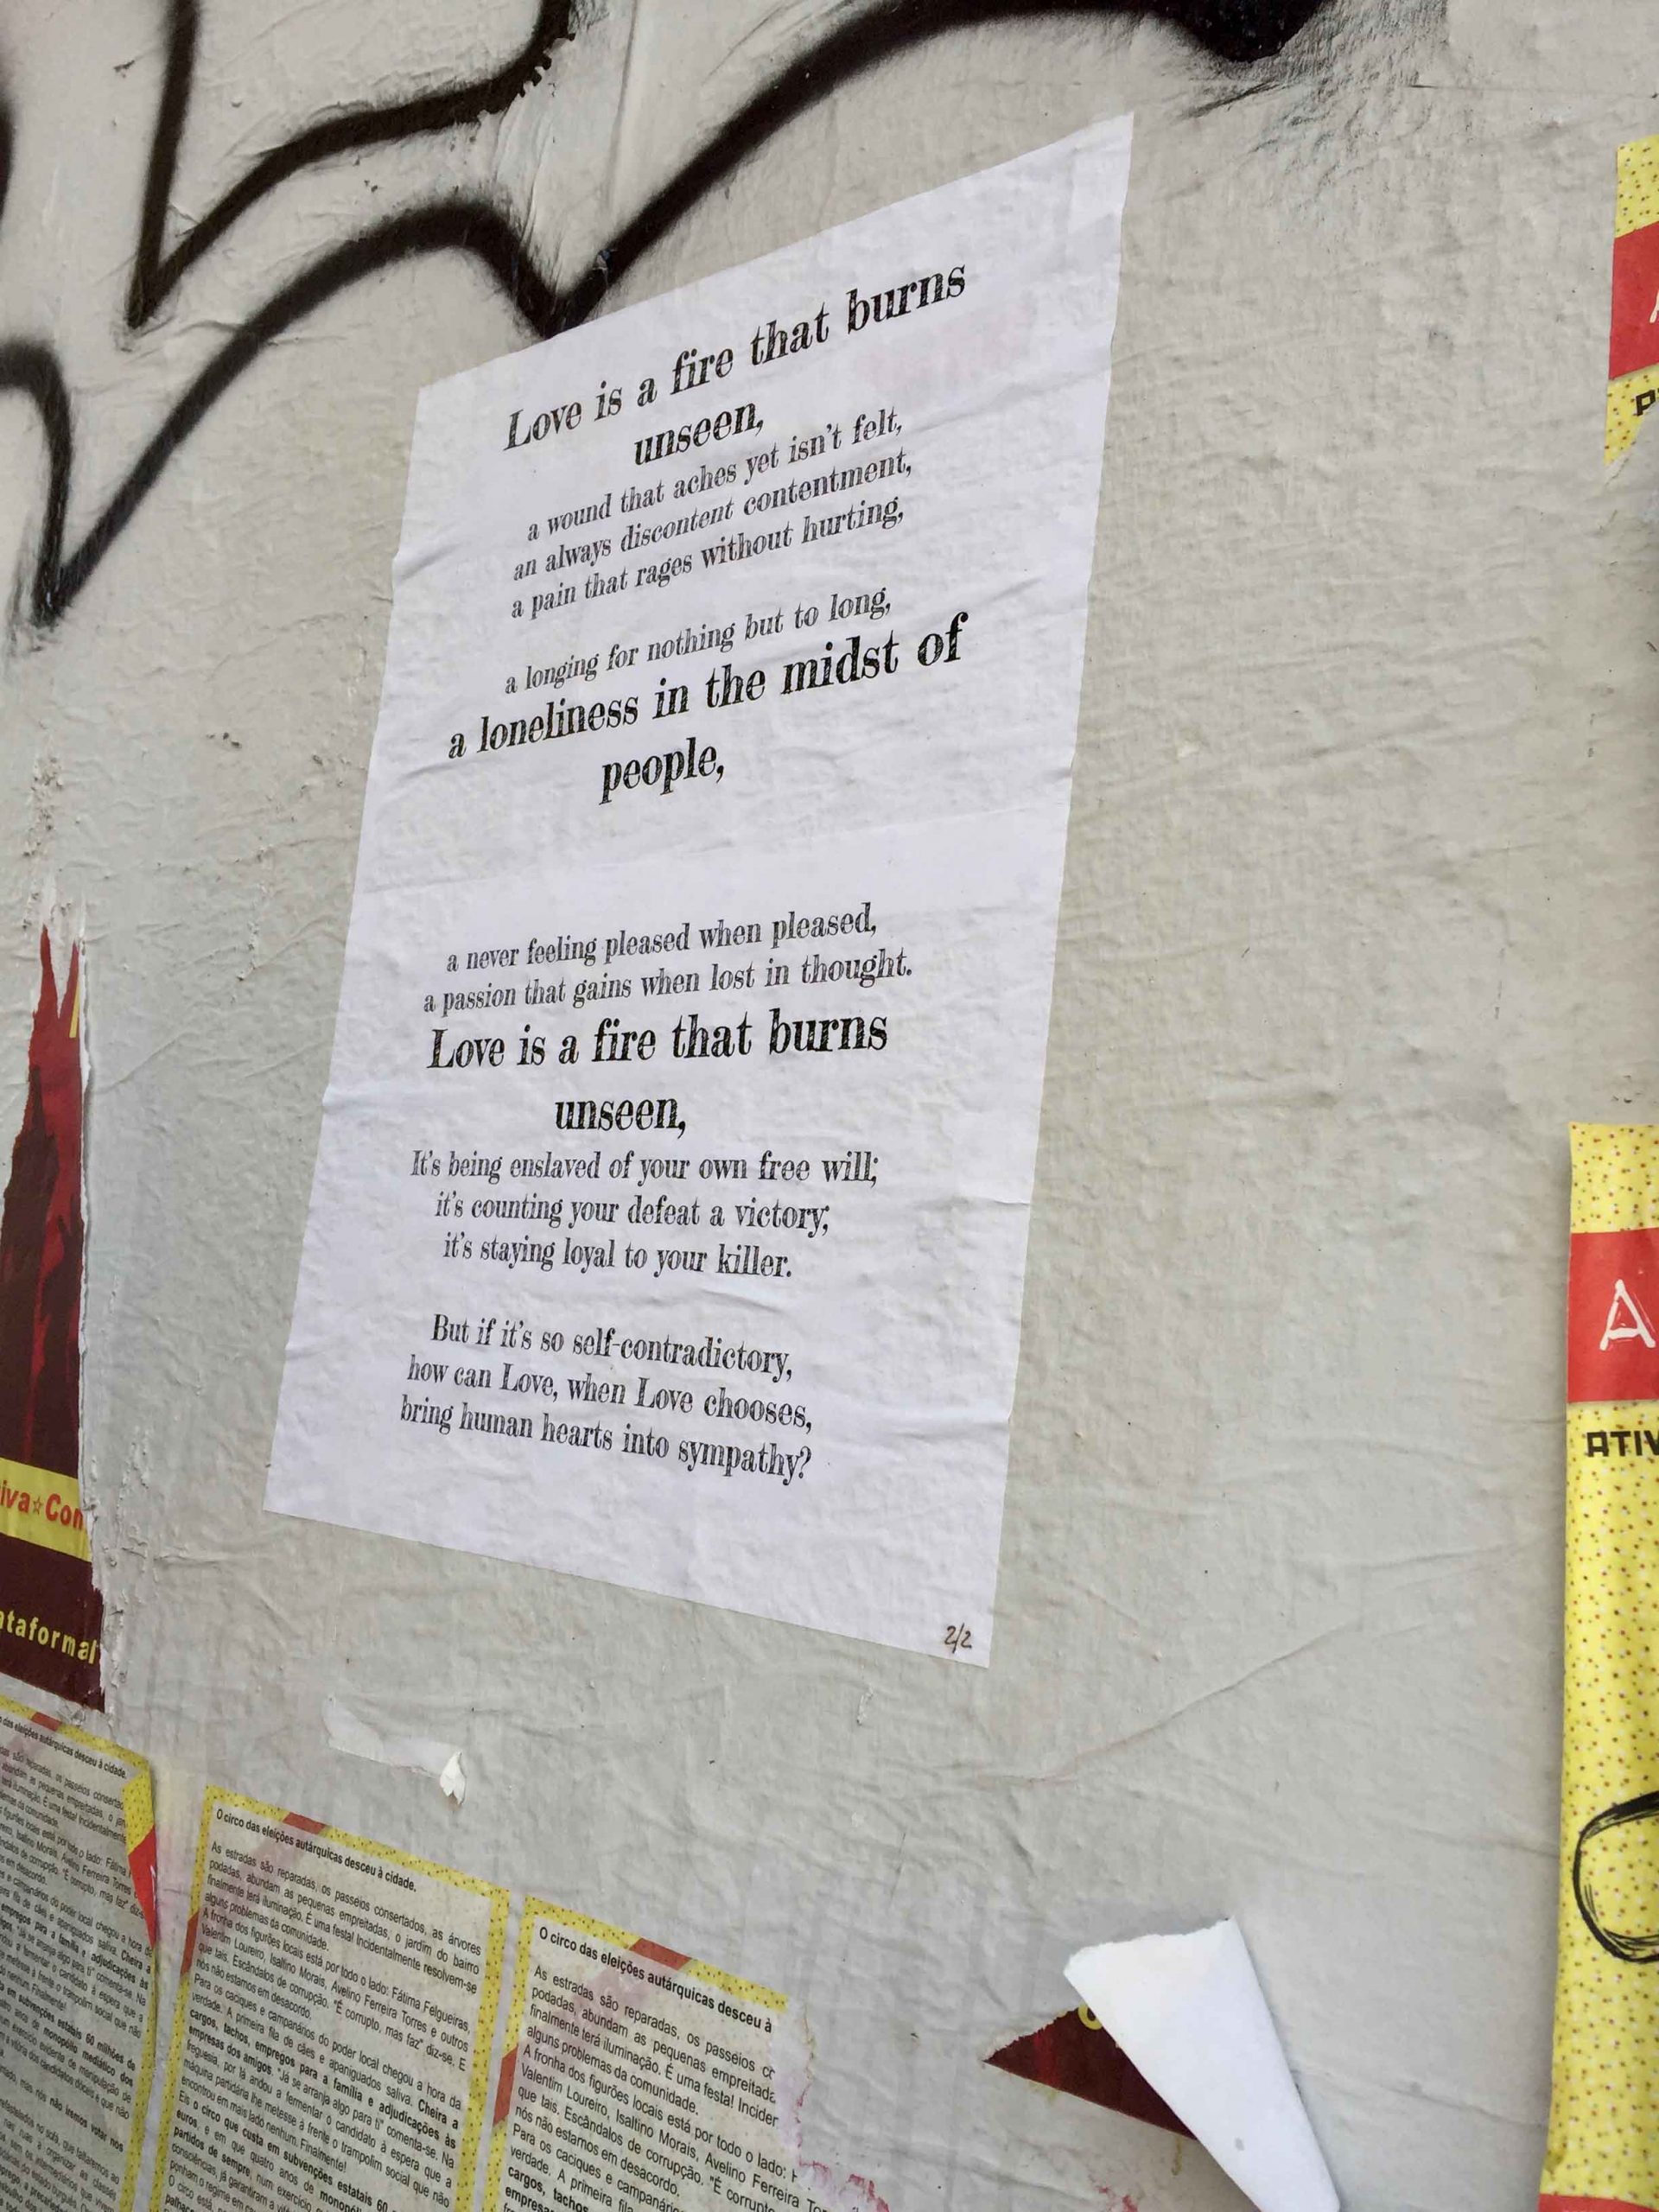 Love is a fire that burns
unseen,
a wound that aches yet isn't felt,
an always discontent contentment,
a pain that rages without hurting,
a longing for nothing but to long,
a loneliness in the midst of
people,
a never feeling pleased when pleased,
a passion that gains when lost in thought.
Love is a fire that burns
unseen,
It's being enslaved of your own free will;
it's counting your defeat a victory;
it's staying loyal to your killer.
But if it's so self-contradictory,
how can Love, when Love chooses,
bring human hearts into sympathy?
2/2
iva☆Con
ataforma
das eleições autárquicas desceu à cidade.
O circo das eleições autárquicas desceu à cidade.
As estradas são reparadas, os passeios consertados, as árvores
podadas, abundam as pequenas empreitadas, o jardim do bairro
finalmente terá iluminação. É uma festa! Incidentalmente resolvem-se
alguns problemas da comunidade.
A fronha dos figurões locais está por todo o lado: Fátima Felgueiras,
Valentim Loureiro, Isaltino Morais, Avelino Ferreira Torres e outros
que tais. Escândalos de corrupção. "É corrupto, mas faz" diz-se. E
nós não estamos em desacordo.
Para os caciques e campanários do poder local chegou a hora da
verdade. A primeira fila de cães e apaniguados saliva. Cheira a
cargos, tachos, empregos para a família e adjudicações às
empresas dos amigos. "Já se arranja algo para ti" comenta-se. Na
freguesia, por lá andou a fermentar o candidato à espera que a
máquina partidária lhe metesse à frente o trampolim social que não
encontrou em mais lado nenhum. Finalmente!
Eis o circo que custa em subvenções estatais 60
euros, e em que quatro anos de monopól
partidos de sempre, num exercício
consciências, já garantiram a vitó
ponham o regime em ca
O circo está
palhaç
O circo das eleições autárquicas desceu à
As estradas são reparadas, os passeios co
podadas, abundam as pequenas empreitada
finalmente terá iluminação. É uma festa! Inciden
alguns problemas da comunidade.
A fronha dos figurões locais está por todo o lado: F
Valentim Loureiro, Isaltino Morais, Avelino Ferreira Tor
que tais. Escândalos de corrupção. "É corrupto
nós não estamos em desacordo.
Para os caciques e campanário
verdade. A primeira fila
cargos, tachos
empresas
A
ATIV